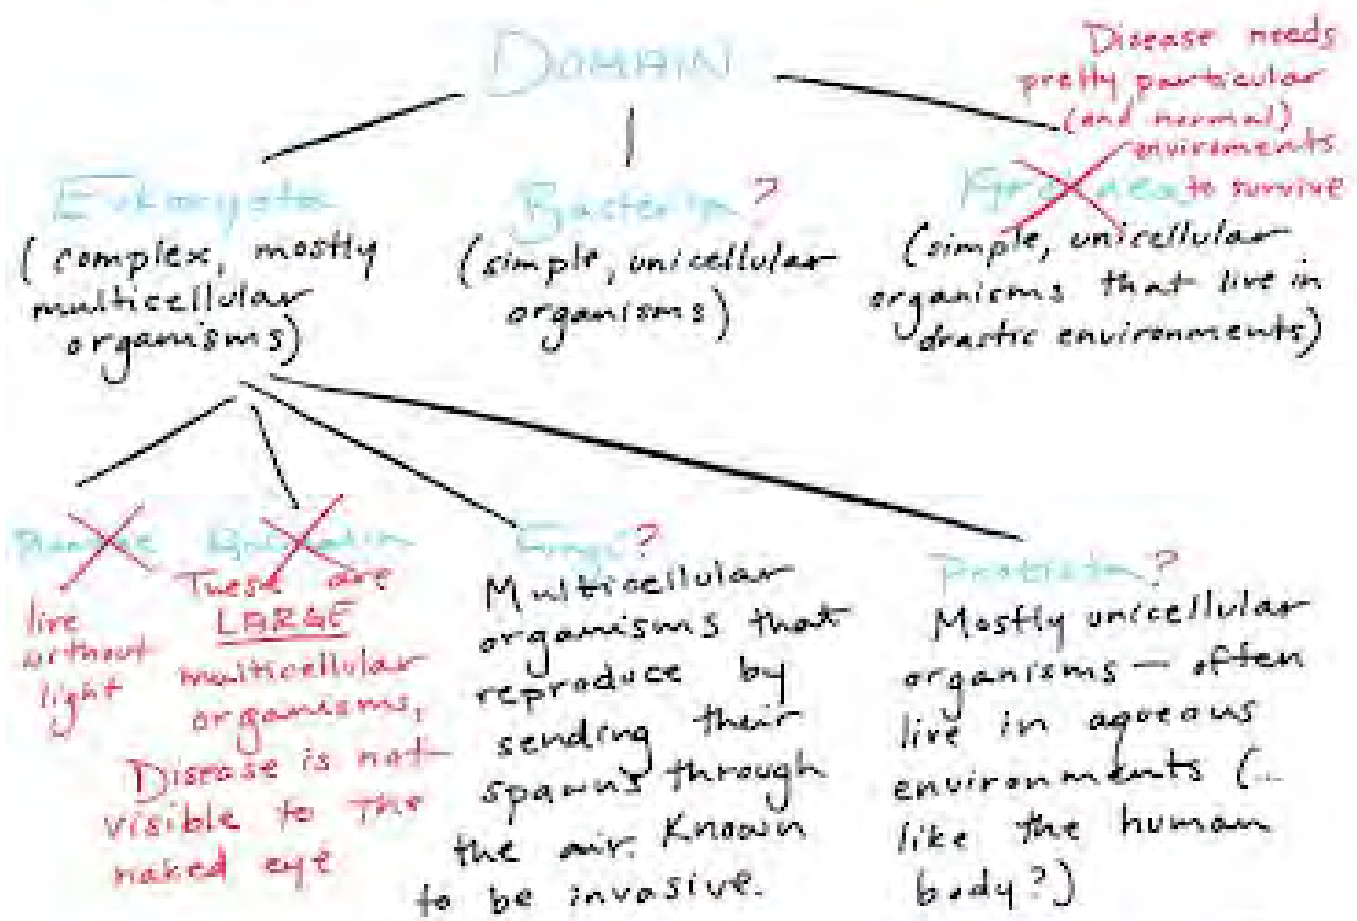 DOMAIN
Disease needs
pretty particular
(and normal)
enviroments
to survive
Eukaryota
(complex, mostly
multicellular
organisms)
Bacteria?
(simple, unicellular
organisms)
(simple, unicellular
organisms that live in
drastic environments)
live
without
light
These are
LARGE
multicellular
organisms,
Disease is not
visible to the
naked eye
Fungi?
Multicellular
organisms that
reproduce by
sending their
spawns through
the air. Known
to be invasive.
Protista?
Mostly unicellular
organisms — often
live in aqueous
environments (...
like the human
body?)